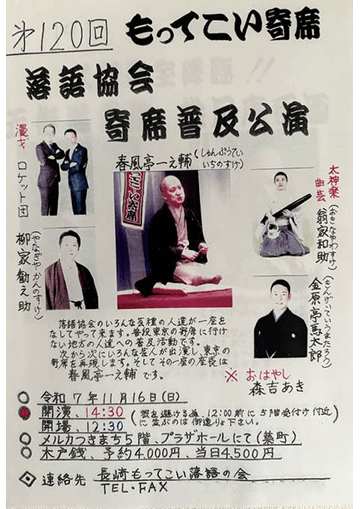 第120回 もってこい寄席
落語協会
寄席普及公演
漫才 ロケット団
春風亭一之輔(しゅんぷうてい いちのすけ)
太神楽
曲芸 翁家和助(おきなやわすけ)
柳家勧之助(やなぎや かんのすけ)
金原亭馬太郎(きんげんていうまたろう)
落語協会のいろんな芸種の人達が一座を
なしてやって来ます。普段東京の寄席に行け
ない地方の人達への普及活動です。
次から次にいろんな芸人が出演し、東京の
寄席を再現します。そしてその一座の座長は
春風亭一之輔 です。
※ おはやし
森吉あき
令和7年11月16日(日)
開演、14:30
開場、12:30
(混を避ける為、12:00前に5階受付け付近
に並ぶのは御遠り下さい。
メルカつきまち5階、プラザホールにて(築町)
木戸銭、予約4.000円、当日4.500円
連絡先 長崎もってこい落語の会
TEL・FAX